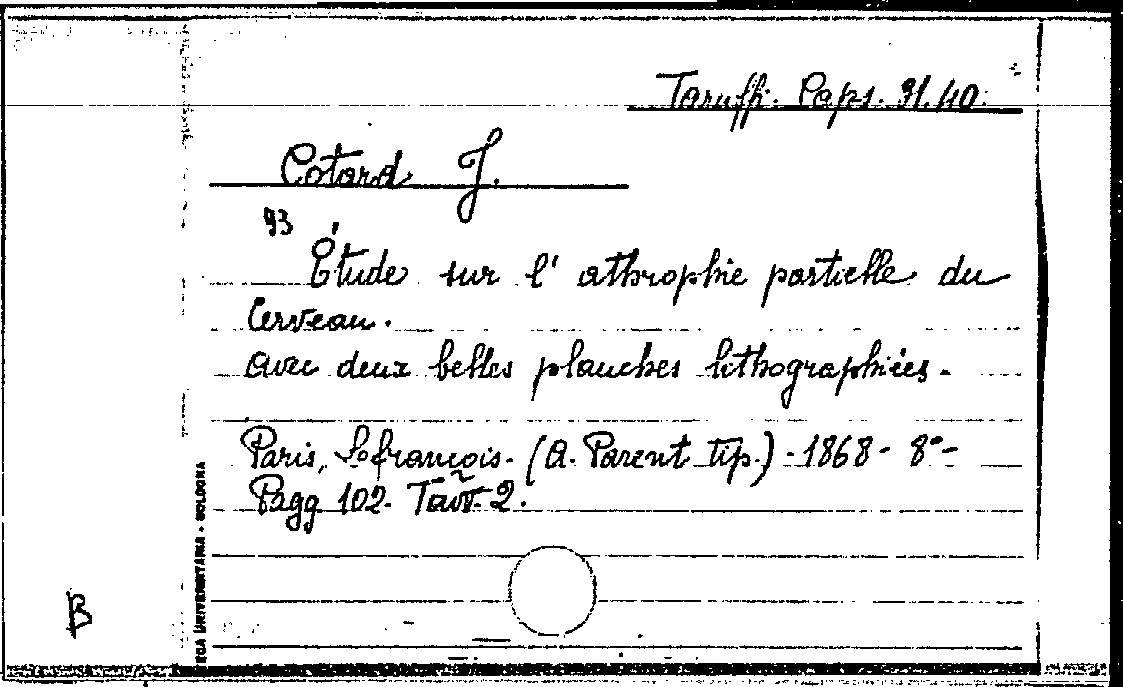 Taruffi. Caps. 91.40.
Cotard J.
93
Étude sur l' athrophie partielle du
Cerveau.
avec deux belles planches lithographiées.
Paris, Lefrançois. (A. Parent tip.) - 1868 - 8° -
Pagg 102. Tavv. 2.
UNIVERSITARIA - BOLOGNA
B